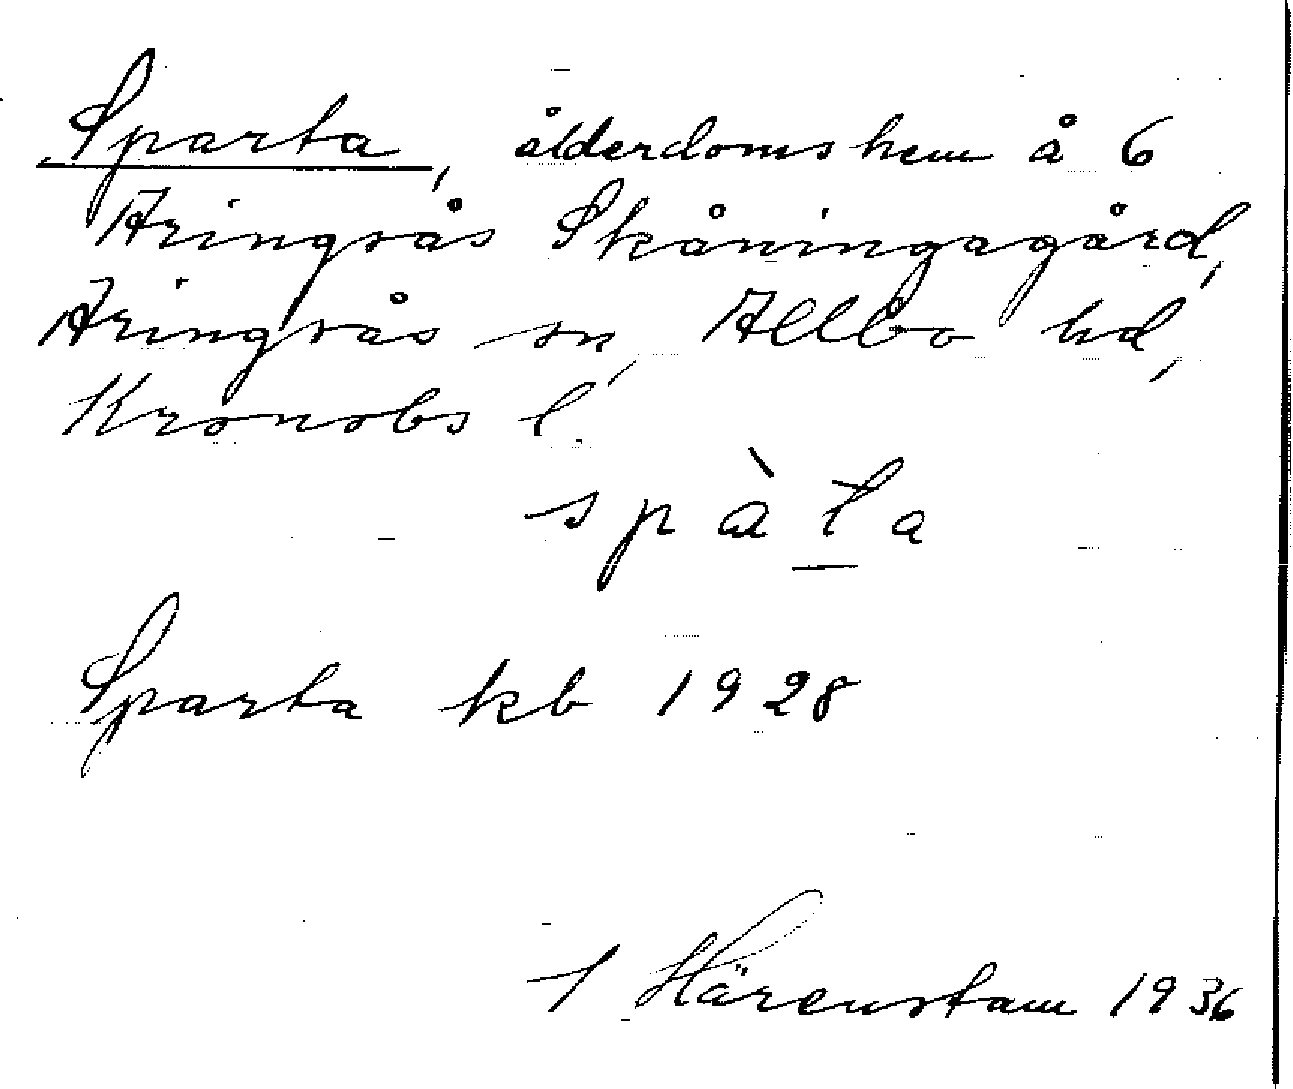 Sparta, ålderdomshem å 6
Aringsås Skåningagård,
Aringsås sn, Allbo hd,
Kronobs l.
spàta
Sparta kb 1928
I Härenstam 1936